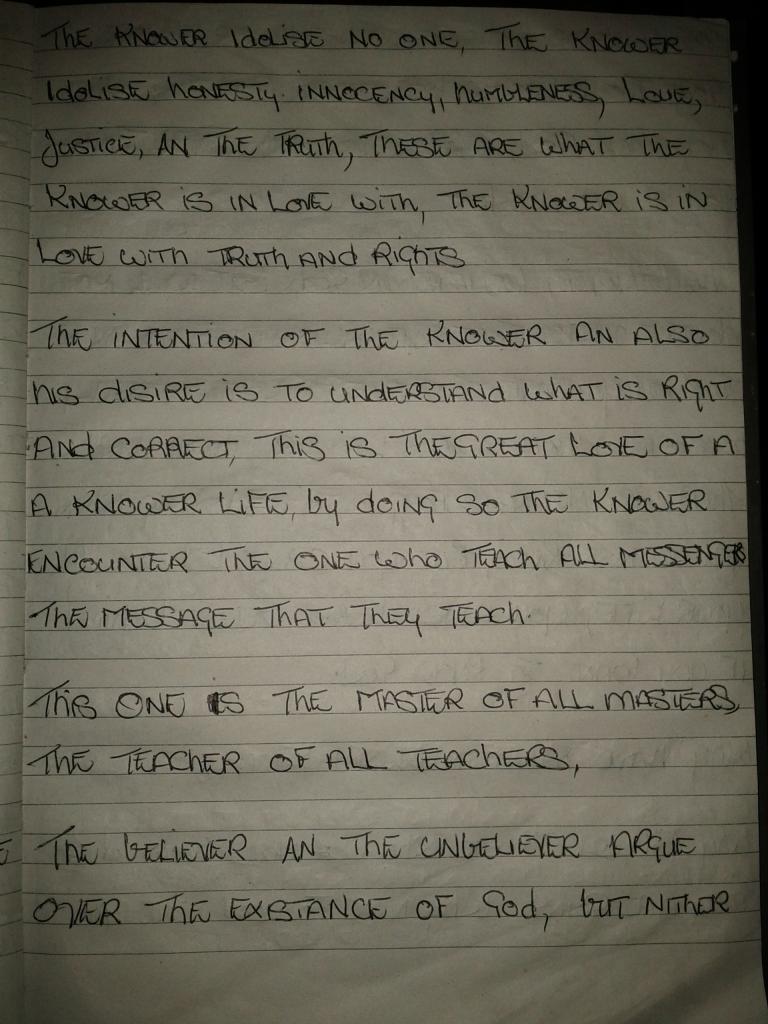 The KNOWER Idolise NO ONE, The KNOWER
Idolise honesty. INNOCENCY, humbleness, Love,
Justice, AN The Truth, These ARE what The
KNOWER is IN Love with, The KNOWER is IN
Love with Truth AND Rights
The INTENTION OF The KNOWER AN ALSO
his disire is TO UNDERSTAND what is Right
AND CORRECT, This is The GREAT Love OF A
A KNOWER LIFE, by doing so The KNOWER
ENCOUNTER The ONE who TEACh ALL MESSENGER
The MESSAGE ThAT They TEACh.
This ONE is The MASTER OF ALL MASTERS,
The TEACHER OF ALL TEACHERS,
The beLIEVER AN The UNbeLIEVER ARGUE
OVER The EXISTANCE OF God, bUT NITHER